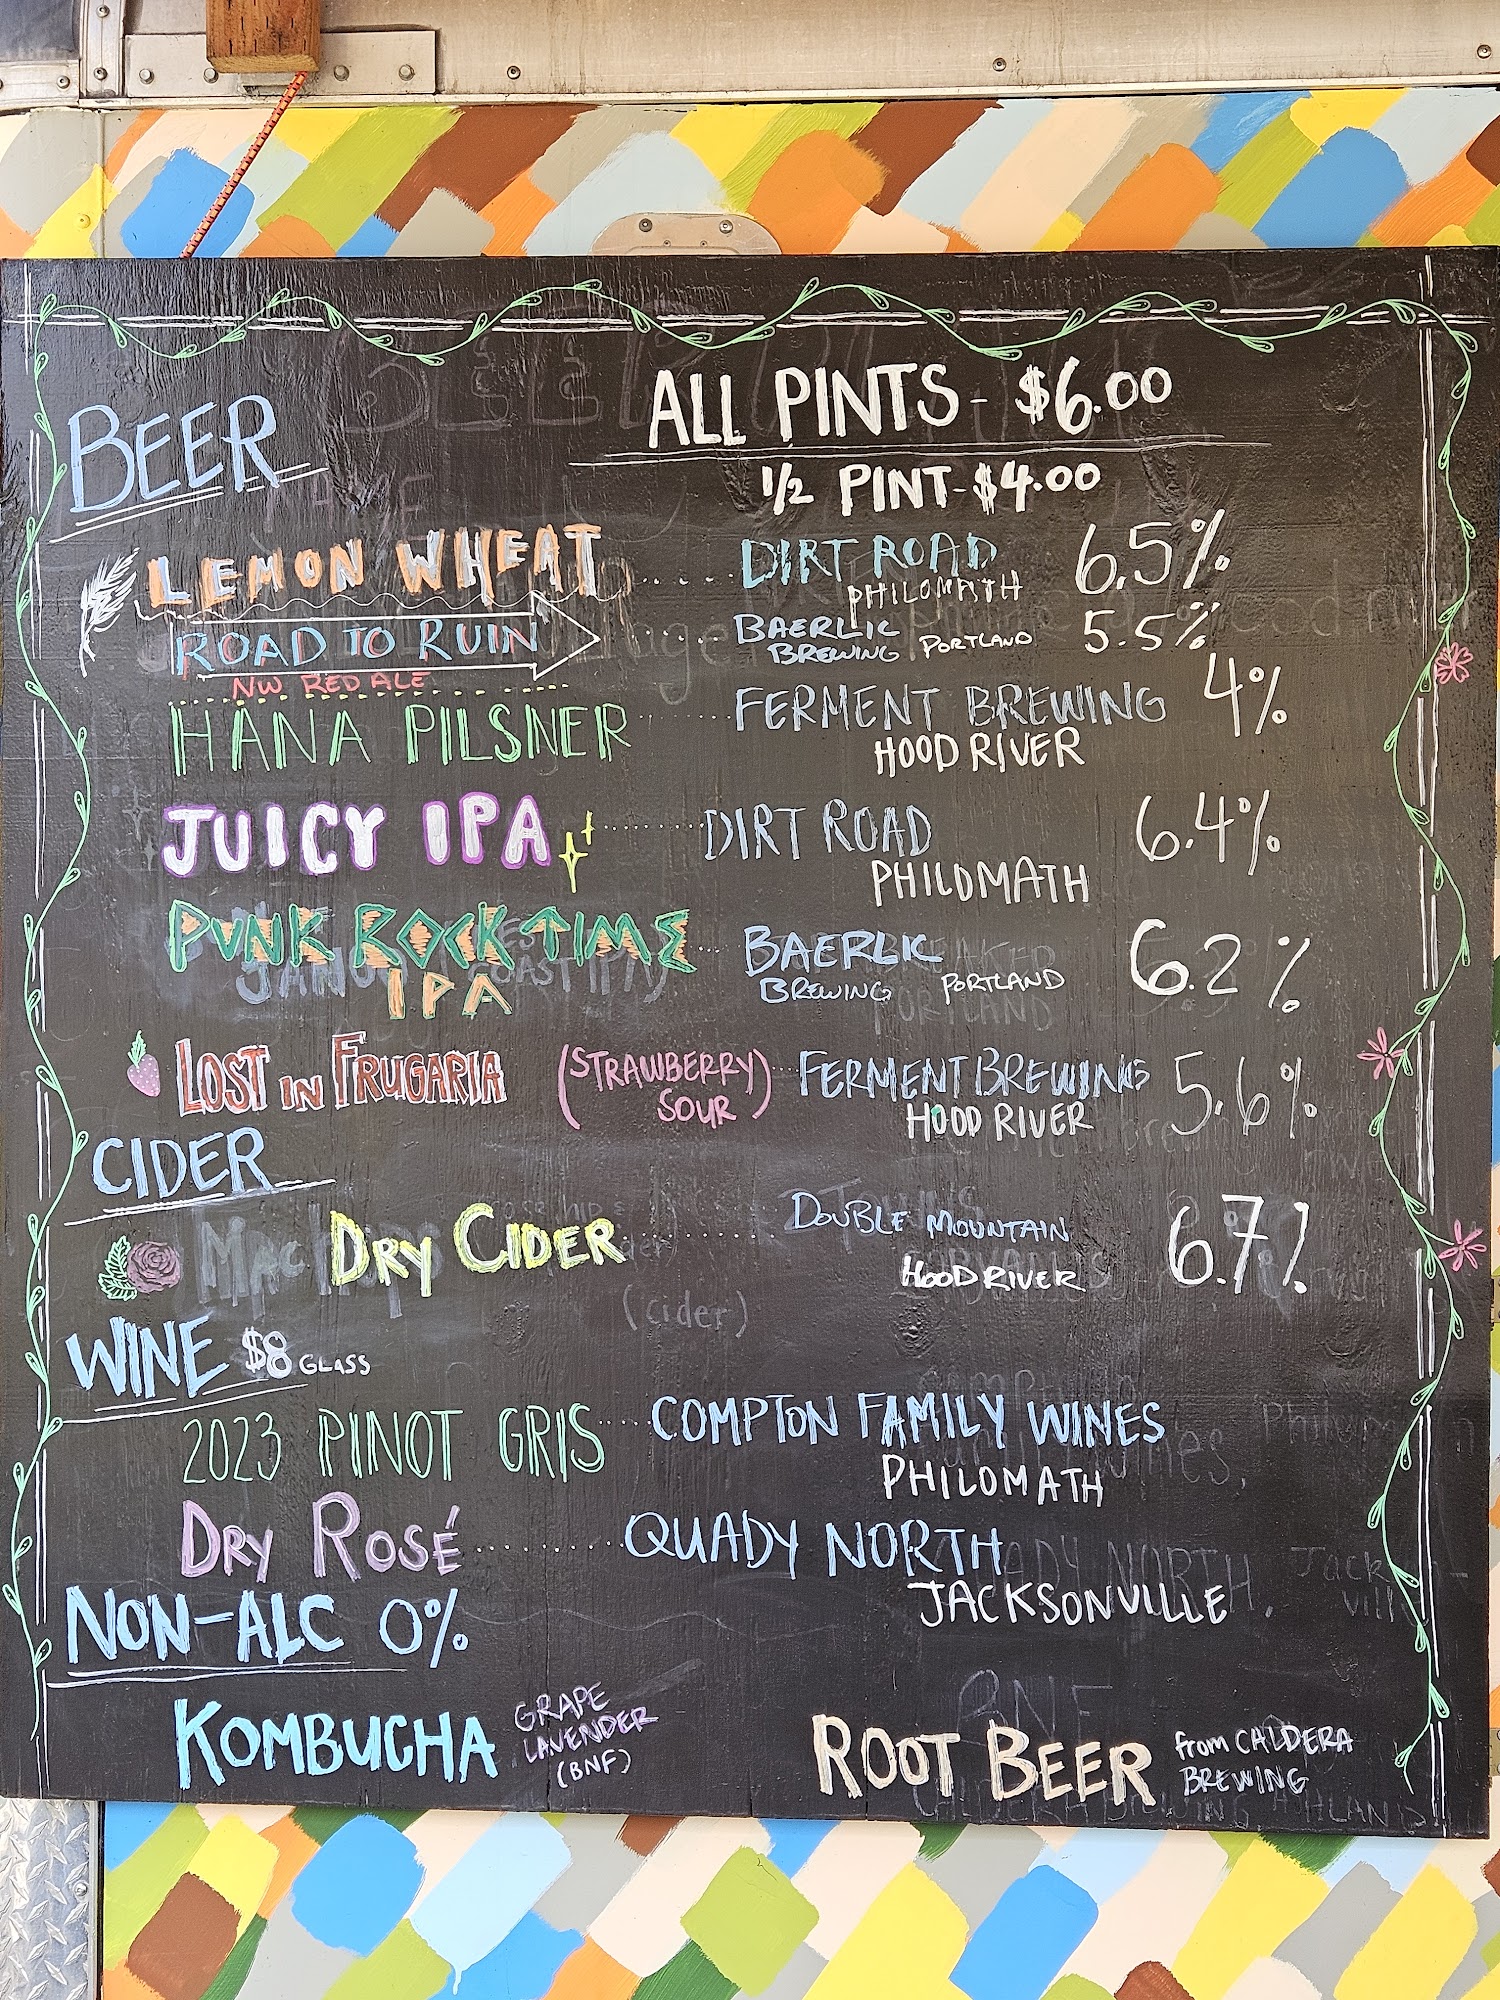 BEER
ALL PINTS - $6.00
1/2 PINT - $4.00
LEMON WHEAT ..... DIRT ROAD 6.5%
PHILOMATH
ROAD TO RUIN ..... BAERLIC 5.5%
BREWING PORTLAND
NW RED ALE
HANA PILSNER ..... FERMENT BREWING 4%
HOOD RIVER
JUICY IPA ..... DIRT ROAD 6.4%
PHILOMATH
PUNK ROCK TIME ... BAERLIC 6.2%
IPA BREWING PORTLAND
LOST IN FRUGARIA (STRAWBERRY ... FERMENT BREWING 5.6%
SOUR) HOOD RIVER
CIDER
DRY CIDER ..... DOUBLE MOUNTAIN 6.7%
HOOD RIVER
(cider)
WINE $8 GLASS
2023 PINOT GRIS ..... COMPTON FAMILY WINES
PHILOMATH
DRY ROSÉ ..... QUADY NORTH
JACKSONVILLE
NON-ALC 0%
KOMBUCHA GRAPE
LAVENDER
(BNF)
ROOT BEER from CALDERA
BREWING